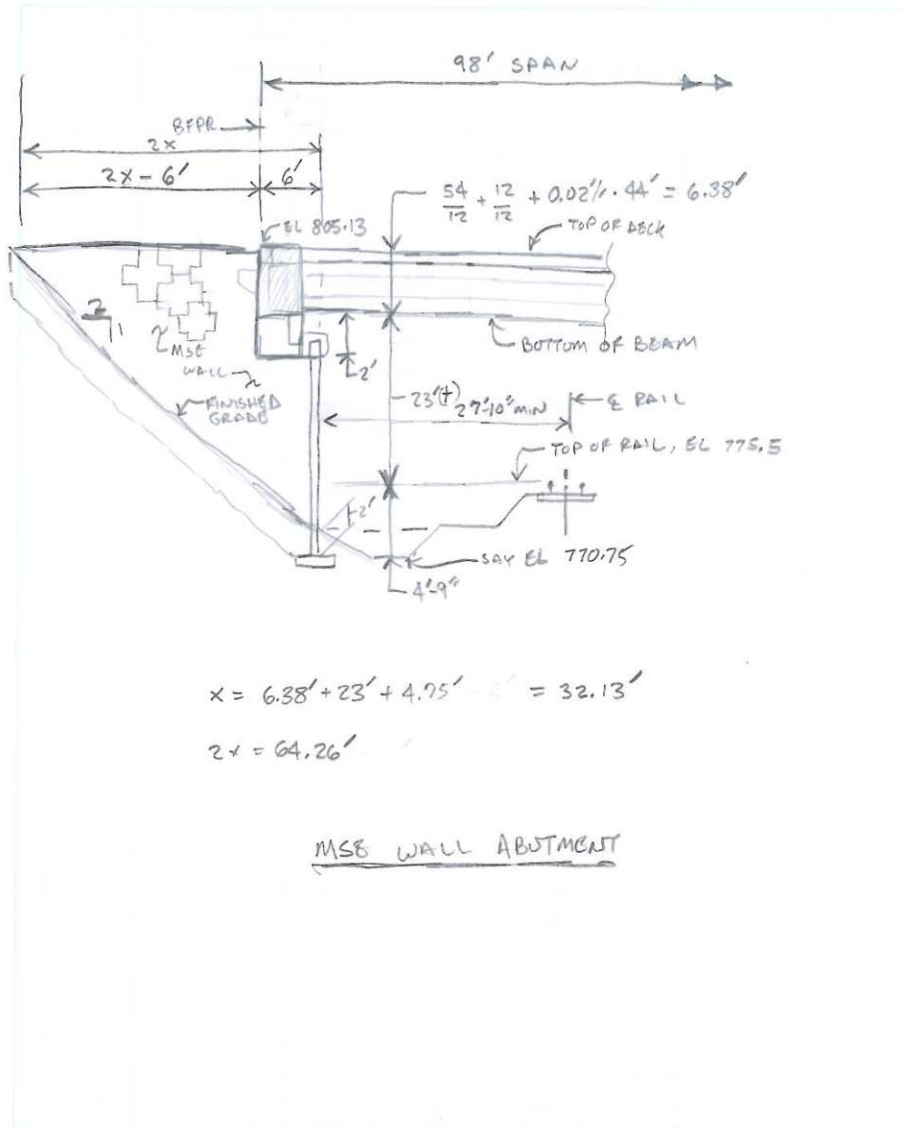 98' SPAN
BFPR
2x
2x - 6'
6'
54/12 + 12/12 + 0.02%. 44' = 6.38'
EL 805.13
TOP OF DECK
2
1
MSE
WALL
2'
BOTTOM OF BEAM
FINISHED
GRADE
23'(+)
27'-10" MIN
℄ RAIL
TOP OF RAIL, EL 775.5
2'
SAY EL 770.75
4'-9"
x = 6.38' + 23' + 4.75' = 32.13'
2x = 64.26'
MSE WALL ABUTMENT